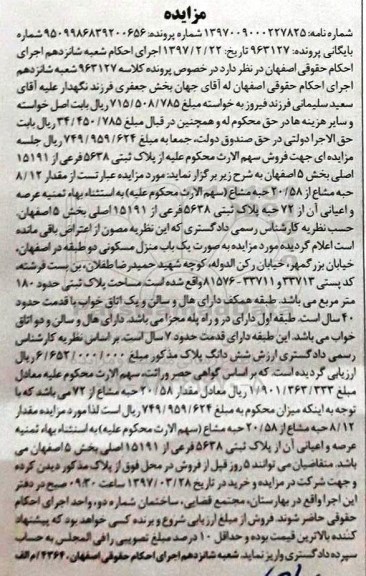 مزایده
شماره نامه: ۱۳۹۷۰۰۹۰۰۰۲۲۷۸۲۵ شماره پرونده: ۹۵۰۹۹۸۶۸۳۹۲۰۰۶۵۶ شماره
بایگانی پرونده: ۹۶۳۱۲۷ تاریخ: ۱۳۹۷/۲/۲۲ اجرای احکام شعبه شانزدهم اجرای
احکام حقوقی اصفهان در نظر دارد در خصوص پرونده کلاسه ۹۶۳۱۲۷ شعبه شانزدهم
اجرای احکام حقوقی اصفهان له آقای جهان بخش جعفری فرزند نگهدار علیه آقای
سعید سلیمانی فرزند فیروز به خواسته مبلغ ۷۱۵/۵۰۸/۷۸۵ ریال بابت اصل خواسته
و سایر هزینه ها در حق محکوم له و همچنین در قبال مبلغ ۳۴/۴۵۰/۷۸۵ ریال بابت
حق الاجرا دولتی در حق صندوق دولت، جمعا به مبلغ ۷۴۹/۹۵۹/۶۲۴ ریال جلسه
مزایده ای جهت فروش سهم الارث محکوم علیه از پلاک ثبتی ۵۶۳۸ فرعی از ۱۵۱۹۱
اصلی بخش ۵ اصفهان به شرح زیر برگزار نماید: مورد مزایده عبارتست از مقدار ۸/۱۲
حبه مشاع از ۲۰/۵۸ حبه مشاع (سهم الارث محکوم علیه) به استثناء بهاء ثمنیه عرصه
و اعیانی آن از ۷۲ حبه پلاک ثبتی ۵۶۳۸ فرعی از ۱۵۱۹۱ اصلی بخش ۵ اصفهان.
حسب نظریه کارشناس رسمی دادگستری که این نظریه مصون از اعتراض باقی مانده
است اعلام گردیده مورد مزایده به صورت یک باب منزل مسکونی دو طبقه در اصفهان،
خیابان بزرگمهر، خیابان رکن الدوله، کوچه شهید حمیدرضا طغلان، بن بست فرشته،
کد پستی ۳۳۷۱۳ و ۳۳۷۱۱-۸۱۵۷۶ واقع شده است. مساحت پلاک ثبتی حدود ۱۸۰
متر مربع می باشد. طبقه همکف دارای هال و سالن و یک اتاق خواب با قدمت حدود
۴۰ سال است. طبقه اول دارای در و راه پله مجزا می باشد دارای هال و سالن و دو اتاق
خواب می باشد. این طبقه دارای قدمت حدود ۷ سال است. بر اساس نظریه کارشناس
رسمی دادگستری ارزش شش دانگ پلاک مذکور مبلغ ۶/۶۵۲/۰۰۰/۰۰۰ ریال
ارزیابی گردیده است. که بر اساس گواهی حصر وراثت، سهم الارث محکوم علیه معادل
مبلغ ۱/۹۰۱/۳۶۳/۳۳۳ ریال معادل مقدار ۲۰/۵۸ حبه مشاع از ۷۲ می باشد که با
توجه به اینکه میزان محکوم به مبلغ ۷۴۹/۹۵۹/۶۲۴ ریال است لذا مورد مزایده مقدار
۸/۱۲ حبه مشاع از ۲۰/۵۸ حبه مشاع (سهم الارث محکوم علیه) به استثناء بهاء ثمنیه
عرصه و اعیانی آن از پلاک ثبتی ۵۶۳۸ فرعی از ۱۵۱۹۱ اصلی بخش ۵ اصفهان می
باشد. متقاضیان می توانند ۵ روز قبل از فروش در محل فوق از پلاک مذکور دیدن کرده
و جهت شرکت در مزایده و خرید در تاریخ ۱۳۹۷/۰۳/۲۸ ساعت ۰۹:۳۰ صبح در دفتر
این اجرا واقع در بهارستان، مجتمع قضایی، ساختمان شماره دو، واحد اجرای احکام
حقوقی حاضر شوند. فروش از مبلغ ارزیابی شروع و برنده کسی خواهد بود که پیشنهاد
کننده بالاترین قیمت بوده و حداقل ۱۰ درصد مبلغ تصویبی را فی المجلس به حساب
سپرده دادگستری واریز نماید. شعبه شانزدهم اجرای احکام حقوقی اصفهان. ۴۳۶۴/م الف